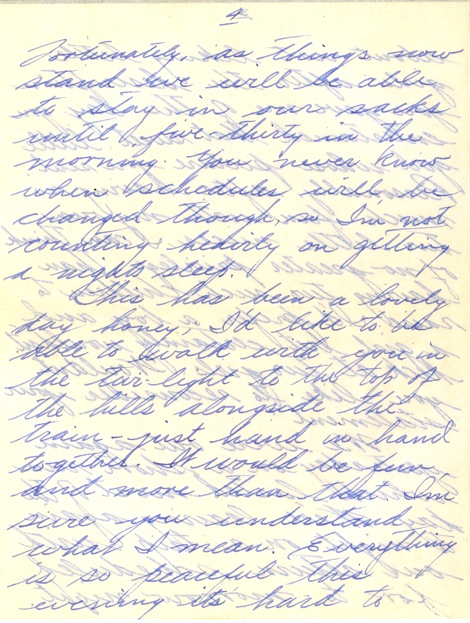 4
Fortunately, as things now
stand we will be able
to stay in our sacks
until five-thirty in the
morning. You never know
when schedules will be
changed though, so I'm not
counting heavily on getting
a nights sleep.
This has been a lovely
day honey, I'd like to be
able to walk with you in
the twi-light to the top of
the hills alongside the
train - just hand in hand
together. It would be fun
and more than that I'm
sure you understand
what I mean. Everything
is so peaceful this
evening its hard to